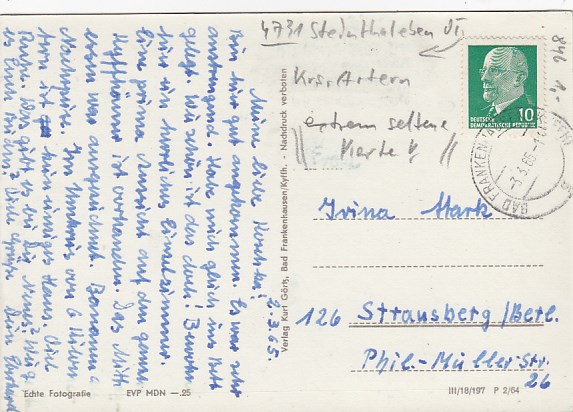 4731 Steinthaleben VI
Krs. Artern
extrem seltene
Karte !!
846 1,-
DEUTSCHE
DEMOKRATISCHE REPUBLIK
10
BAD FRANKENHAUSEN
-3.3.65-1
2.3.65.
Meine liebe
Bin hier gut angekommen. Es war sehr
anstrengend. Habe mich gleich ins Bett
gelegt. Wie schön ist das doch!
hier ein
eine prima Aussicht auf den ganzen
Kyffhäuser ist vorhanden. Das Mitt
essen war ausgezeichnet. Promenade
Im Umkreis von 6 Kilom.
hier ist kein einziges Haus. Viel
Ruhe. Was gibt es bei Dir Neues? Wie
Viele Grüße Dein
Verlag Kurt Görtz, Bad Frankenhausen/Kyffh. - Nachdruck verboten
Irina Mark
126 Strausberg/Berl.
Phil-Müller-Str.
26
Echte Fotografie EVP MDN —.25
III/18/197 P 2/64